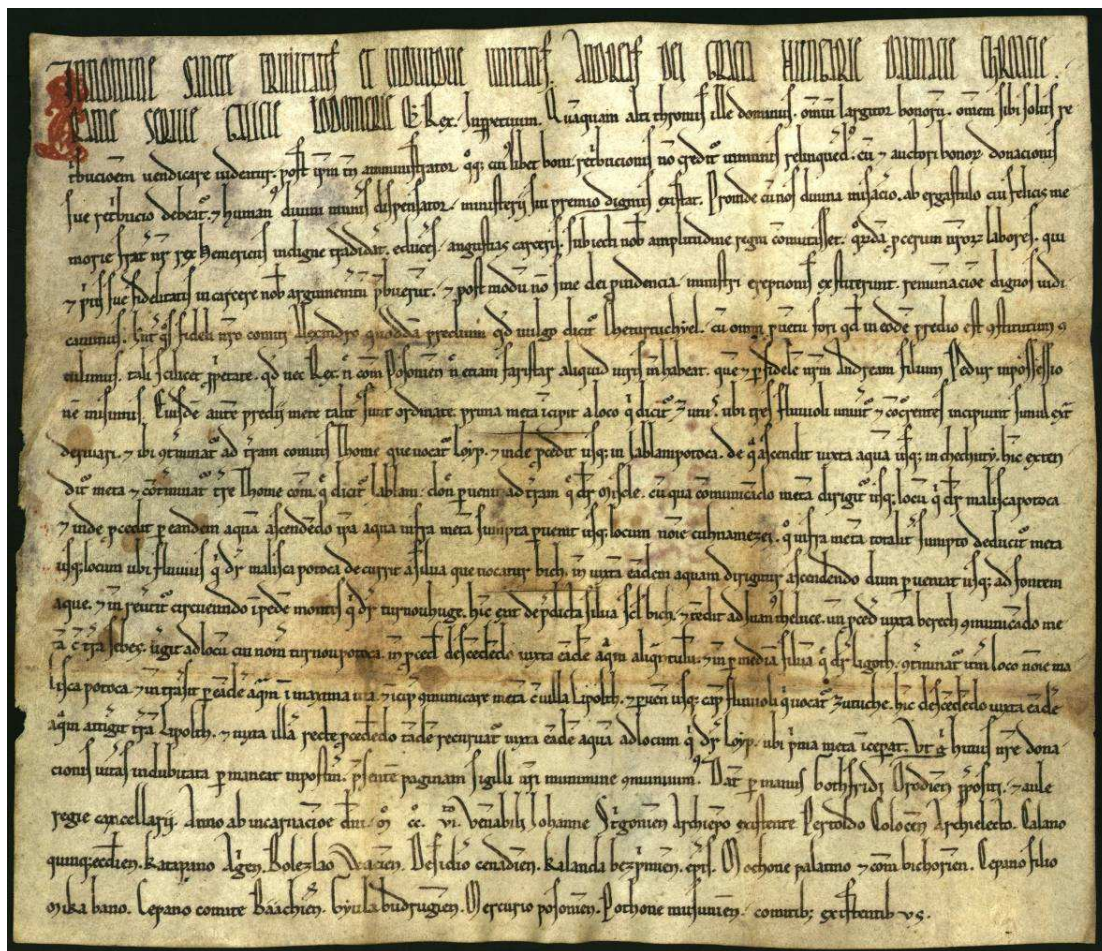 In nomine sancte trinitatis et individue unitatis. Andreas dei gracia hungarie dalmacie chroacie
Rame Servie Gallicie lodomerie Rex. Inppetuum. Quaquam alti thronus ille dominus. omniū largitor bonorū. omnem sibi solius re
tbucioem vendicare videatur. post ipm tn amministrator qq; cuiuslibet boni retbucionis no creditur inmunis relinqued. cu ⁊ auctori bonor donacionis
sue retbucio debeat. ⁊ human divini munis dispensator. ministerii sui premio dignus existat. Proinde cu nos divina misacio. ab ergastulo cui felicis me
morie frat nr rex Hemericus indigne tradidat. educes. angustias carceris. subiecti nob amplitudine regni comutasset. qda pcerum nror labores. qui
⁊ prius sue fidelitatis in carcere nob argumentu pbuerut. ⁊ post modu no sine dei pvidencia. ministri erepcionis exstiterunt. remunacioe dignos iudi
cavimus. fideli nro comiti Alexandro quodda predium qd vulgo dicit cu omni pvetu fori qd in eode predio est
tulimus. tali scilicet libertate. qd nec Rex. n com Posonien n etiam aliquid iuris in habeat. que ⁊ p fidele nrm Andream filium Pedur in possessio
ne misimus. Eiusde aute predii mete talit sunt ordinate. prima meta icipit a loco q dicit ubi tres fluvioli uniut ⁊ cocrentes incipiunt simul ext
derivari. ⁊ ibi cterminat ad tram comitis Thome que vocat loyp. ⁊ inde pcedit usq; in lablanipotoca. de q ascendit iuxta aqua usq; in chechuty. hic exten
dit meta ⁊ coterminat tre Thome com. q dicit lablani. don pveniat ad tram q dr Misle. cu qua comunicado meta dirigit usq; locu q dr maliscapotoca
⁊ inde pcedit p eandem aqua ascendedo ipa aqua infra meta sumpta pvenit usq; locum noie cuhnamezei. q infra meta totalit sumpto deducit meta
usq; locum ubi fluvius q dr malisca potoca decurrit a silva que vocatur bich. in iuxta eadem aquam dirigitur ascendendo dum pveniat usq; ad fontem
aque. ⁊ in revertit circueundo ipede montis q dr turnouhuge. hic exit de pdicta silva scl bich. ⁊ tedit ad ivan theluce. in pced iuxta berech comunicado me
ta c tra sebes. vgit ad locu cui nom turnoupotoca. in pced descededo iuxta eade aqm aliqntulu. ⁊ in p media silva q dr ligoth. cterminat itm loco noie ma
lisca potoca. ⁊ in transit p eade aqm i maxima via. ⁊ icip comunicare meta c villa Lipolth. ⁊ pven usq; cap fluvioli q vocat zutuche. hic descededo iuxta eade
aqm attigit tra Lipolth. ⁊ iuxta illa recte pcededo tade recurvat iuxta eade aqua ad locum q dr loyp. ubi pma meta iceperat. Vt g huius nre dona
cionis vitas indubitata pmaneat inposteru. psente paginam sigilli nri munimine comunivim. Dat p manus Gothfridi Orodien ppositi. ⁊ aule
regie cancellarii. Anno ab incarnacioe dni. m. cc. vi. Venabili Iohanne Strgonien Archiepo existente Pertoldo Colocen Archielecto. Calano
quinq;ecclien. Katapano Agrien. Bolezlao Vacien. Desiderio cenadien. Kalanda bezpmien. epis. Mochone palatino ⁊ com bichorien. Cepano filio
mika bano. Cepano comite Baachien. Gyula budrugien. Mercurio posonien. Pothone musunien. comitib; existentib vs.